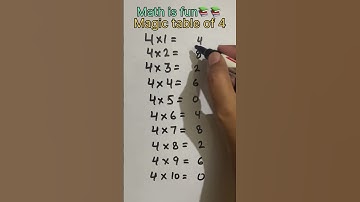 Math is fun📚📚
Magic table of 4
4×1= 4
4×2= 8
4×3= 2
4×4= 6
4×5= 0
4×6= 4
4×7= 8
4×8= 2
4×9= 6
4×10= 0